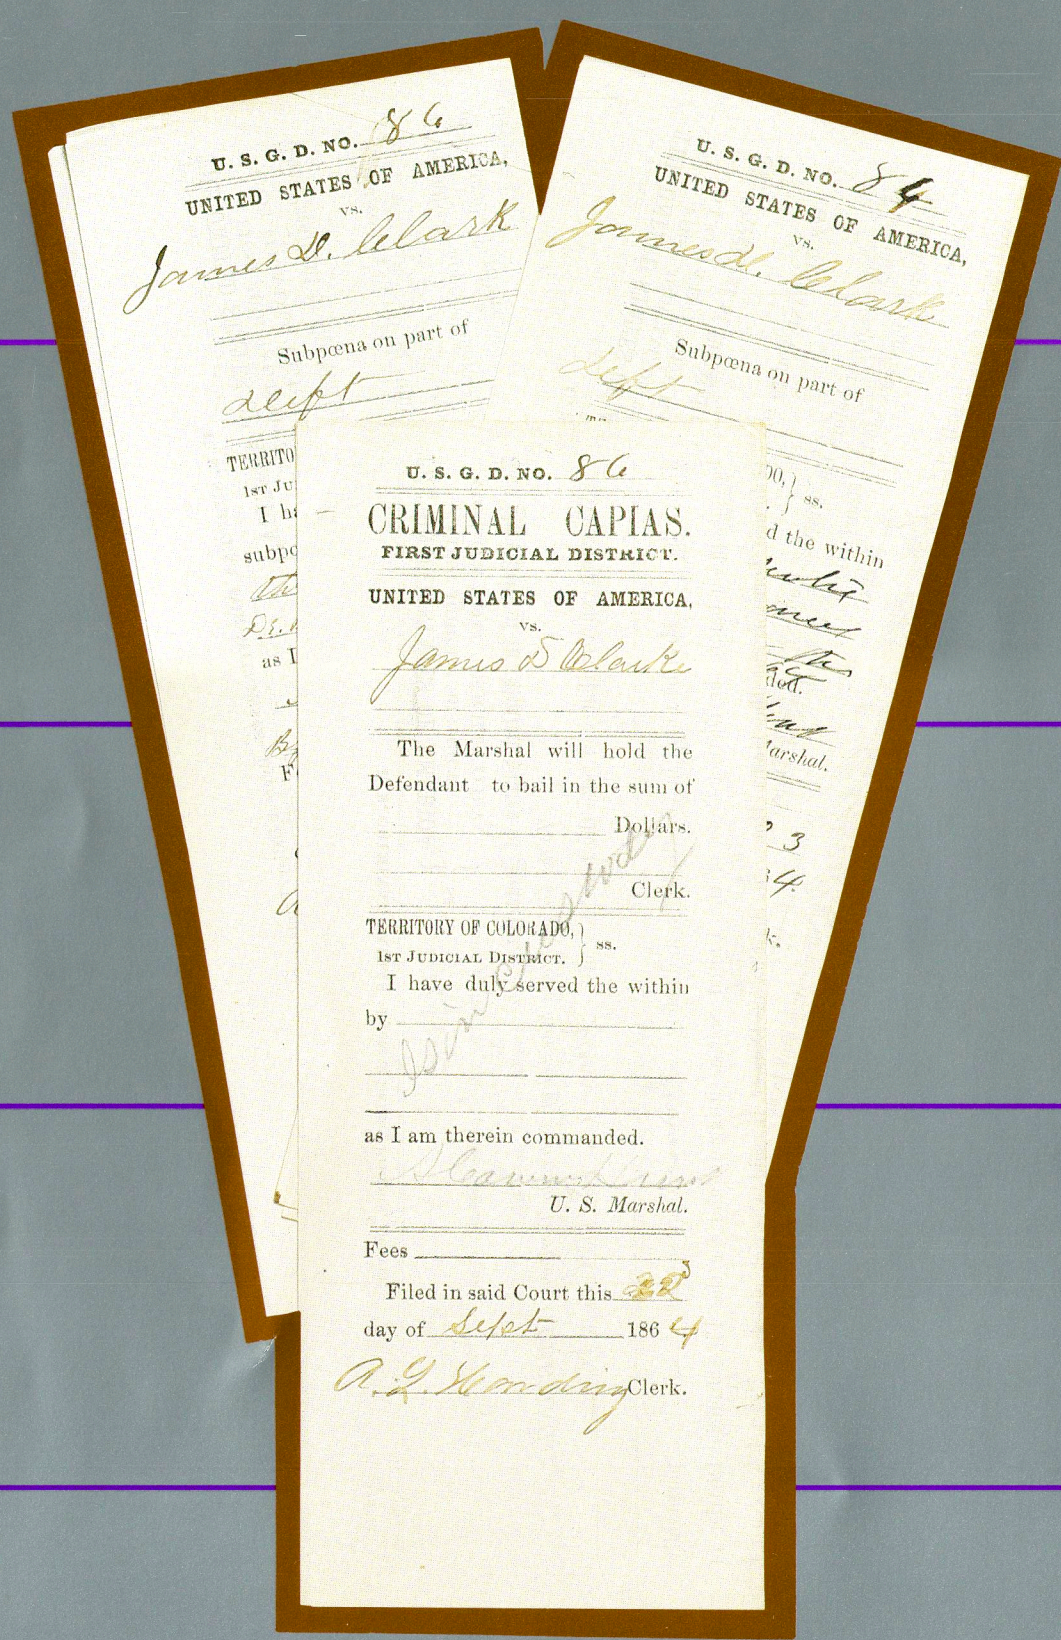 U. S. G. D. NO. 86
UNITED STATES OF AMERICA,
vs.
James D. Clark
Subpœna on part of
Deft
TERRITO
1ST JU
I ha
subpo
the
as I
By
F
U. S. G. D. NO. 86
UNITED STATES OF AMERICA,
vs.
James D. Clark
Subpœna on part of
Deft
OO, } ss.
d the within
ded.
Marshal.
3
4.
k.
U. S. G. D. NO. 86
CRIMINAL CAPIAS.
FIRST JUDICIAL DISTRICT.
UNITED STATES OF AMERICA,
vs.
James D Clarke
The Marshal will hold the
Defendant to bail in the sum of
Dollars.
Clerk.
TERRITORY OF COLORADO, } ss.
1ST JUDICIAL DISTRICT.
I have duly served the within
by
as I am therein commanded.
A Cameron Hunt
U. S. Marshal.
Fees
Filed in said Court this 22
day of Sept 1864
A. L. Harding Clerk.